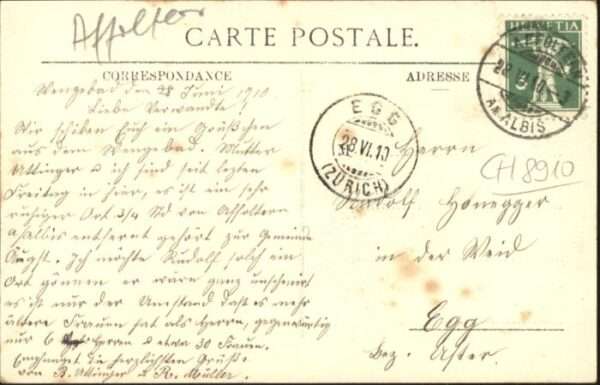 Affoltern
CARTE POSTALE.
CORRESPONDANCE
ADRESSE
HELVETIA
5
AFFOLTERN
28.VI.10
AM ALBIS
EGG
28.VI.10
(ZÜRICH)
CH 8910
Wengebad den 28 Juni 1910.
Liebe Verwandte!
Wir schiken Euch ein Grüsschen
aus dem Wengebad. Mutter
Attinger u ich sind seit letzten
Freitag in hier, es ist ein sehr
ruhiger Ort 3/4 Std von Affoltern
a/albis entfernt gehört zur Gemeinde
Augst. Ich möchte Rudolf solch ein
Ort gönnen er wäre ganz unscheniert
es ist nur der Umstand dast es mehr
ältere Frauen hat als Herrn, gegenwärtig
nur 6 Herrn u etwa 30 Frauen.
Empfanget die herzlichsten Grüsse
von B. Attinger u R. Müller.
Herrn
Rudolf Honegger
in der Weid
Egg
Bez. Uster.